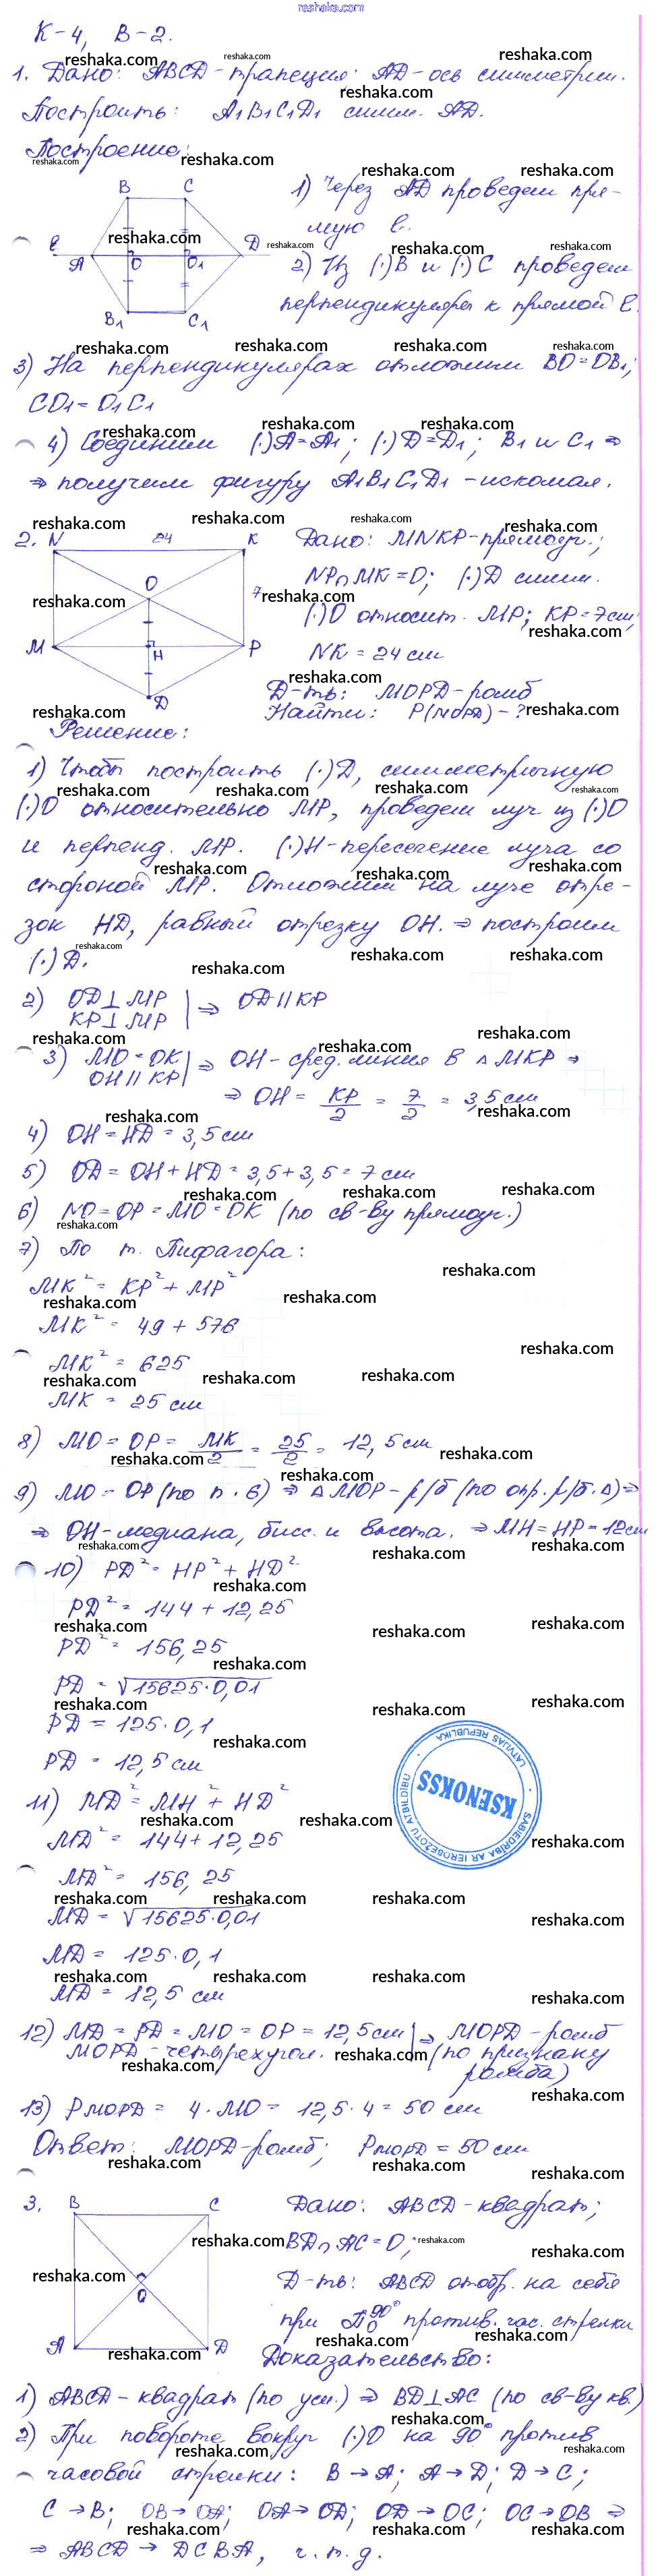 reshaka.com
К-4, В-2.
1. Дано: ABCD - трапеция; AD - ось симметрии.
Построить: A₁B₁C₁D₁ симм. AD.
Построение:
B C
ℓ A O O₁ D
B₁ C₁
1) Через AD проведем пря-
мую ℓ.
2) Из (·)B и (·)C проведем
перпендикуляры к прямой ℓ.
3) На перпендикулярах отложим BO=OB₁;
CO₁=O₁C₁
4) Соединим (·)A=A₁; (·)D=D₁; B₁ и C₁ ⇒
⇒ получим фигуру A₁B₁C₁D₁ - искомая.
2. N 24 K
O
7
M H P
D
Дано: MNKP - прямоуг.;
NP∩MK=O; (·)D симм.
(·)O относит. MP; KP=7см;
NK=24 см
Д-ть: MOPD - ромб
Найти: P(MOPD) - ?
Решение:
1) Чтобы построить (·)D, симметричную
(·)O относительно MP, проведем луч из (·)O
и перпенд. MP. (·)H - пересечение луча со
стороной MP. Отложим на луче отре-
зок HD, равный отрезку OH. ⇒ построим
(·)D.
2) OD⊥MP
KP⊥MP | ⇒ OD∥KP
3) MO=OK
OH∥KP | ⇒ OH - сред. линия в △MKP ⇒
⇒ OH = KP/2 = 7/2 = 3,5 см
4) OH=HD=3,5 см
5) OD=OH+HD=3,5+3,5=7 см
6) NO=OP=MO=OK (по св-ву прямоуг.)
7) По т. Пифагора:
MK²=KP²+MP²
MK²=49+576
MK²=625
MK=25 см
8) MO=OP=MK/2=25/2=12,5 см
9) MO=OP (по п. 6) ⇒ △MOP - р/б (по опр. р/б. △) ⇒
⇒ OH - медиана, бисс. и высота. ⇒ MH=HP=12 см
10) PD²=HP²+HD²
PD²=144+12,25
PD²=156,25
PD=√15625·0,01
PD=125·0,1
PD=12,5 см
11) MD²=MH²+HD²
MD²=144+12,25
MD²=156,25
MD=√15625·0,01
MD=125·0,1
MD=12,5 см
LATVIJAS REPUBLIKA
KSENOKSS
SABIEDRĪBA AR IEROBEŽOTU ATBILDĪBU
12) MD=PD=MO=OP=12,5 см | ⇒ MOPD - ромб
MOPD - четырехугол. (по признаку
ромба)
13) Pᴍᴏᴘᴅ = 4·MO=12,5·4=50 см
Ответ: MOPD - ромб; Pᴍᴏᴘᴅ=50 см
3. B C
O
A D
Дано: ABCD - квадрат;
BD∩AC=O;
Д-ть: ABCD отобр. на себя
при П₀⁹⁰° против. час. стрелки
Доказательство:
1) ABCD - квадрат (по усл.) ⇒ BD⊥AC (по св-ву кв.)
2) При повороте вокруг (·)O на 90° против
часовой стрелки: B→A; A→D; D→C;
C→B; OB→OA; OA→OD; OD→OC; OC→OB ⇒
⇒ ABCD → DCBA, ч.т.д.